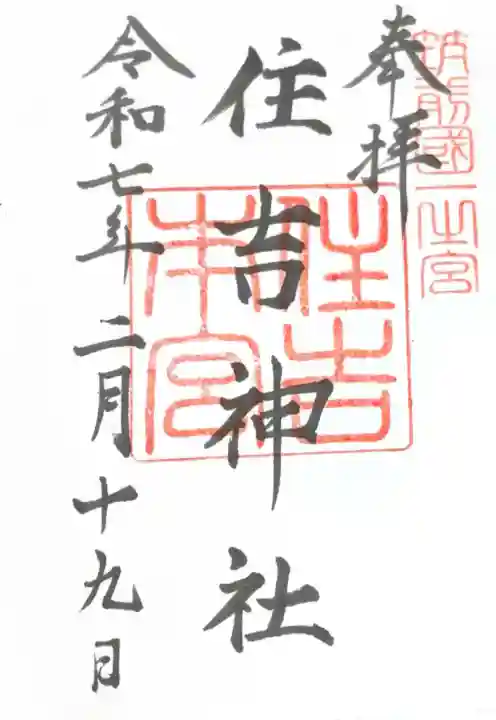 筑前國一之宮
奉拝
住吉神社
住吉本宮
令和七年二月十九日